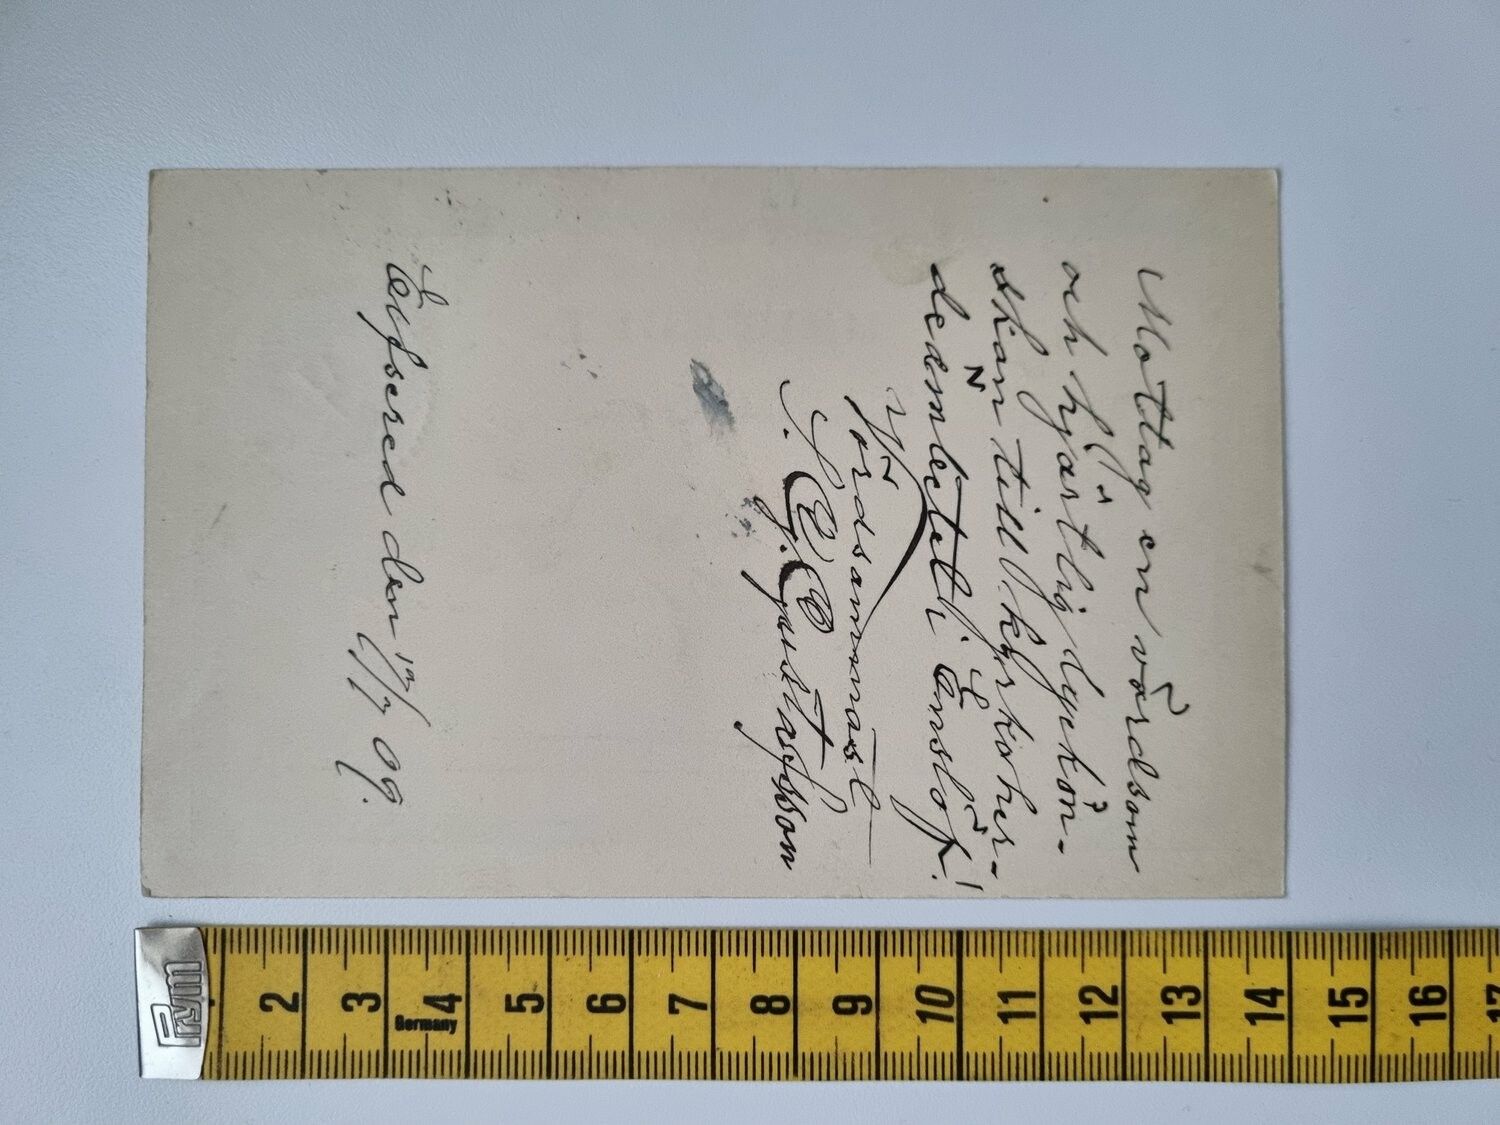 Mottag en vördsam
och hjärtlig lyckön-
skan till kyrkoher-
debefattningen i Enslöf!
Vördsammast
J. Gustafsson
den 12/7 99.
Prym
2 3 4 5 6 7 8 9 10 11 12 13 14 15 16 17
Germany